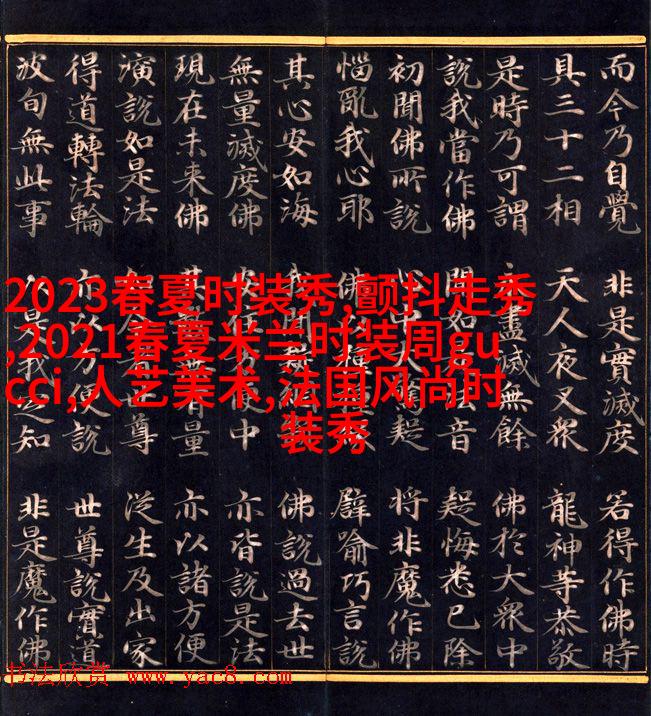 而今乃自覺 非是實滅度 若得作佛時
具三十二相 天人夜叉眾 龍神等恭敬
是時乃可謂 盡滅無餘 佛於大眾中
說我當作佛 聞如是法音 疑悔悉已除
初聞佛所說 心中大驚疑 將非魔作佛
惱亂我心耶 佛種 譬喻巧言說
其心安如海 我聞疑 佛說過去世
無量滅度佛 安住方便中 亦皆說是法
現在未來佛 其數無有量 亦以諸方便
演說如是法 如今者世尊 從生及出家
得道轉法輪 亦以方便說 世尊說實道
波旬無此事 以是我定知 非是魔作佛
2023春夏时装秀,颤抖走秀
,2021春夏米兰时装周gu
cci,人艺美术,法国风尚时
装秀
书法欣赏 www.yac8.com